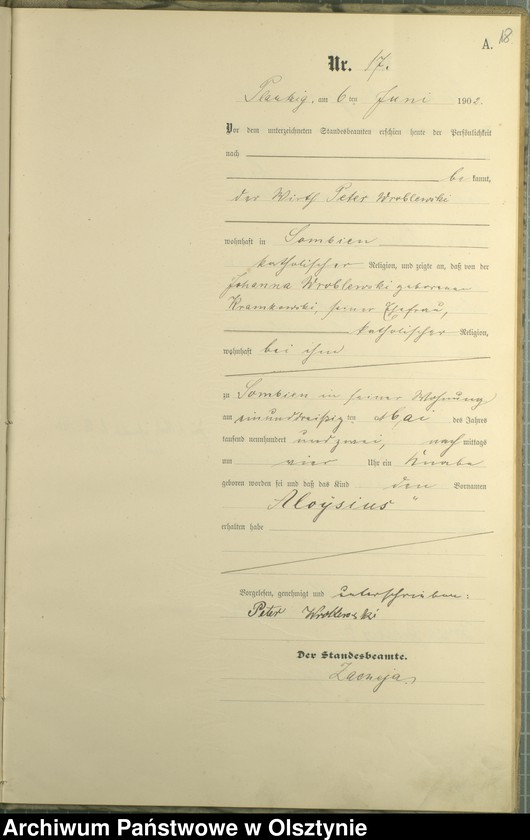 A. 18
Nr. 17.
am 6 ten Juni 1902.
Vor dem unterzeichneten Standesbeamten erschien heute der Persönlichkeit
nach
be kannt,
der Wirth Peter Wroblewski
wohnhaft in Sombien
katholischer Religion, und zeigte an, daß von der
Johanna Wroblewski geborenen
Kramkowski, seiner Ehefrau,
katholischer Religion,
wohnhaft bei ihm
zu Sombien in seiner Wohnung
am einunddreißig ten Mai des Jahres
tausend neunhundert und zwei, nach mittags
um vier Uhr ein Knabe
geboren worden sei und daß das Kind den Vornamen
Aloysius"
erhalten habe
Vorgelesen, genehmigt und unterschrieben:
Peter Wroblewski
Der Standesbeamte.
Archiwum Państwowe w Olsztynie